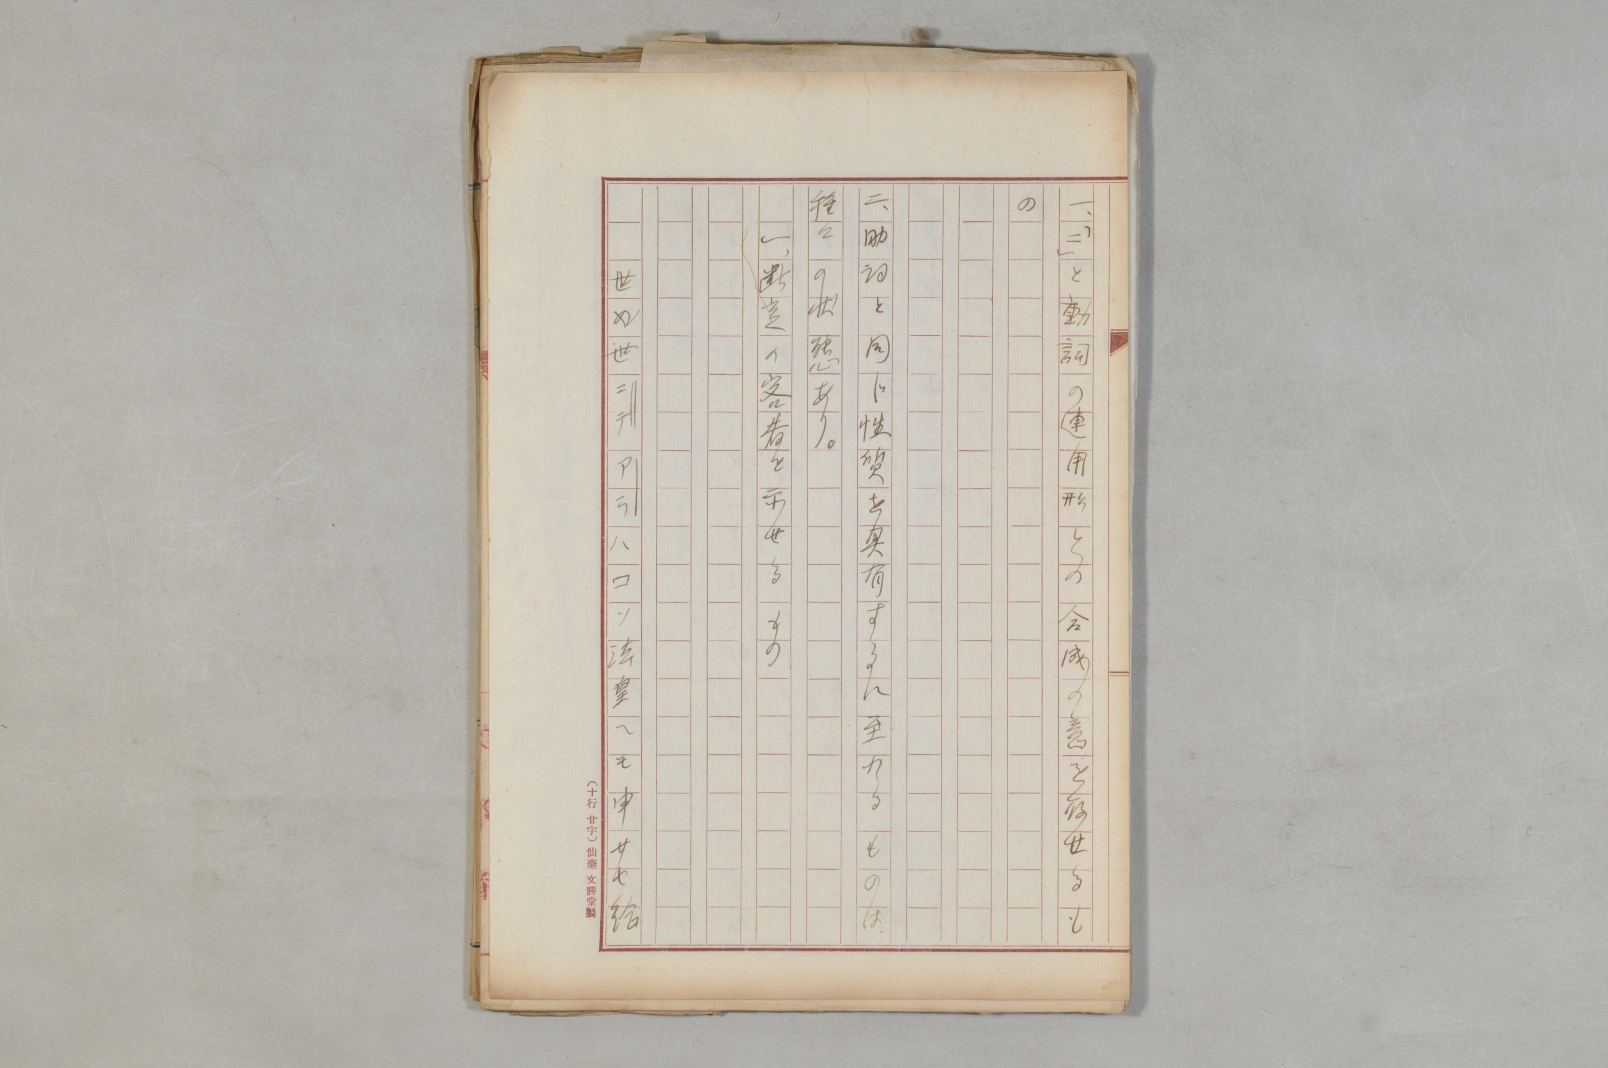 一、「ニ」と動詞の連用形との合成の意を存せるも
の
二、助詞と同じ性質を具有するに至れるものは
種々の状態あり。
一、断定の客者を示せるもの
世ぬ世ニテアラハコソ法皇ヘモ申サセ給
(十行廿字)仙臺文勝堂製